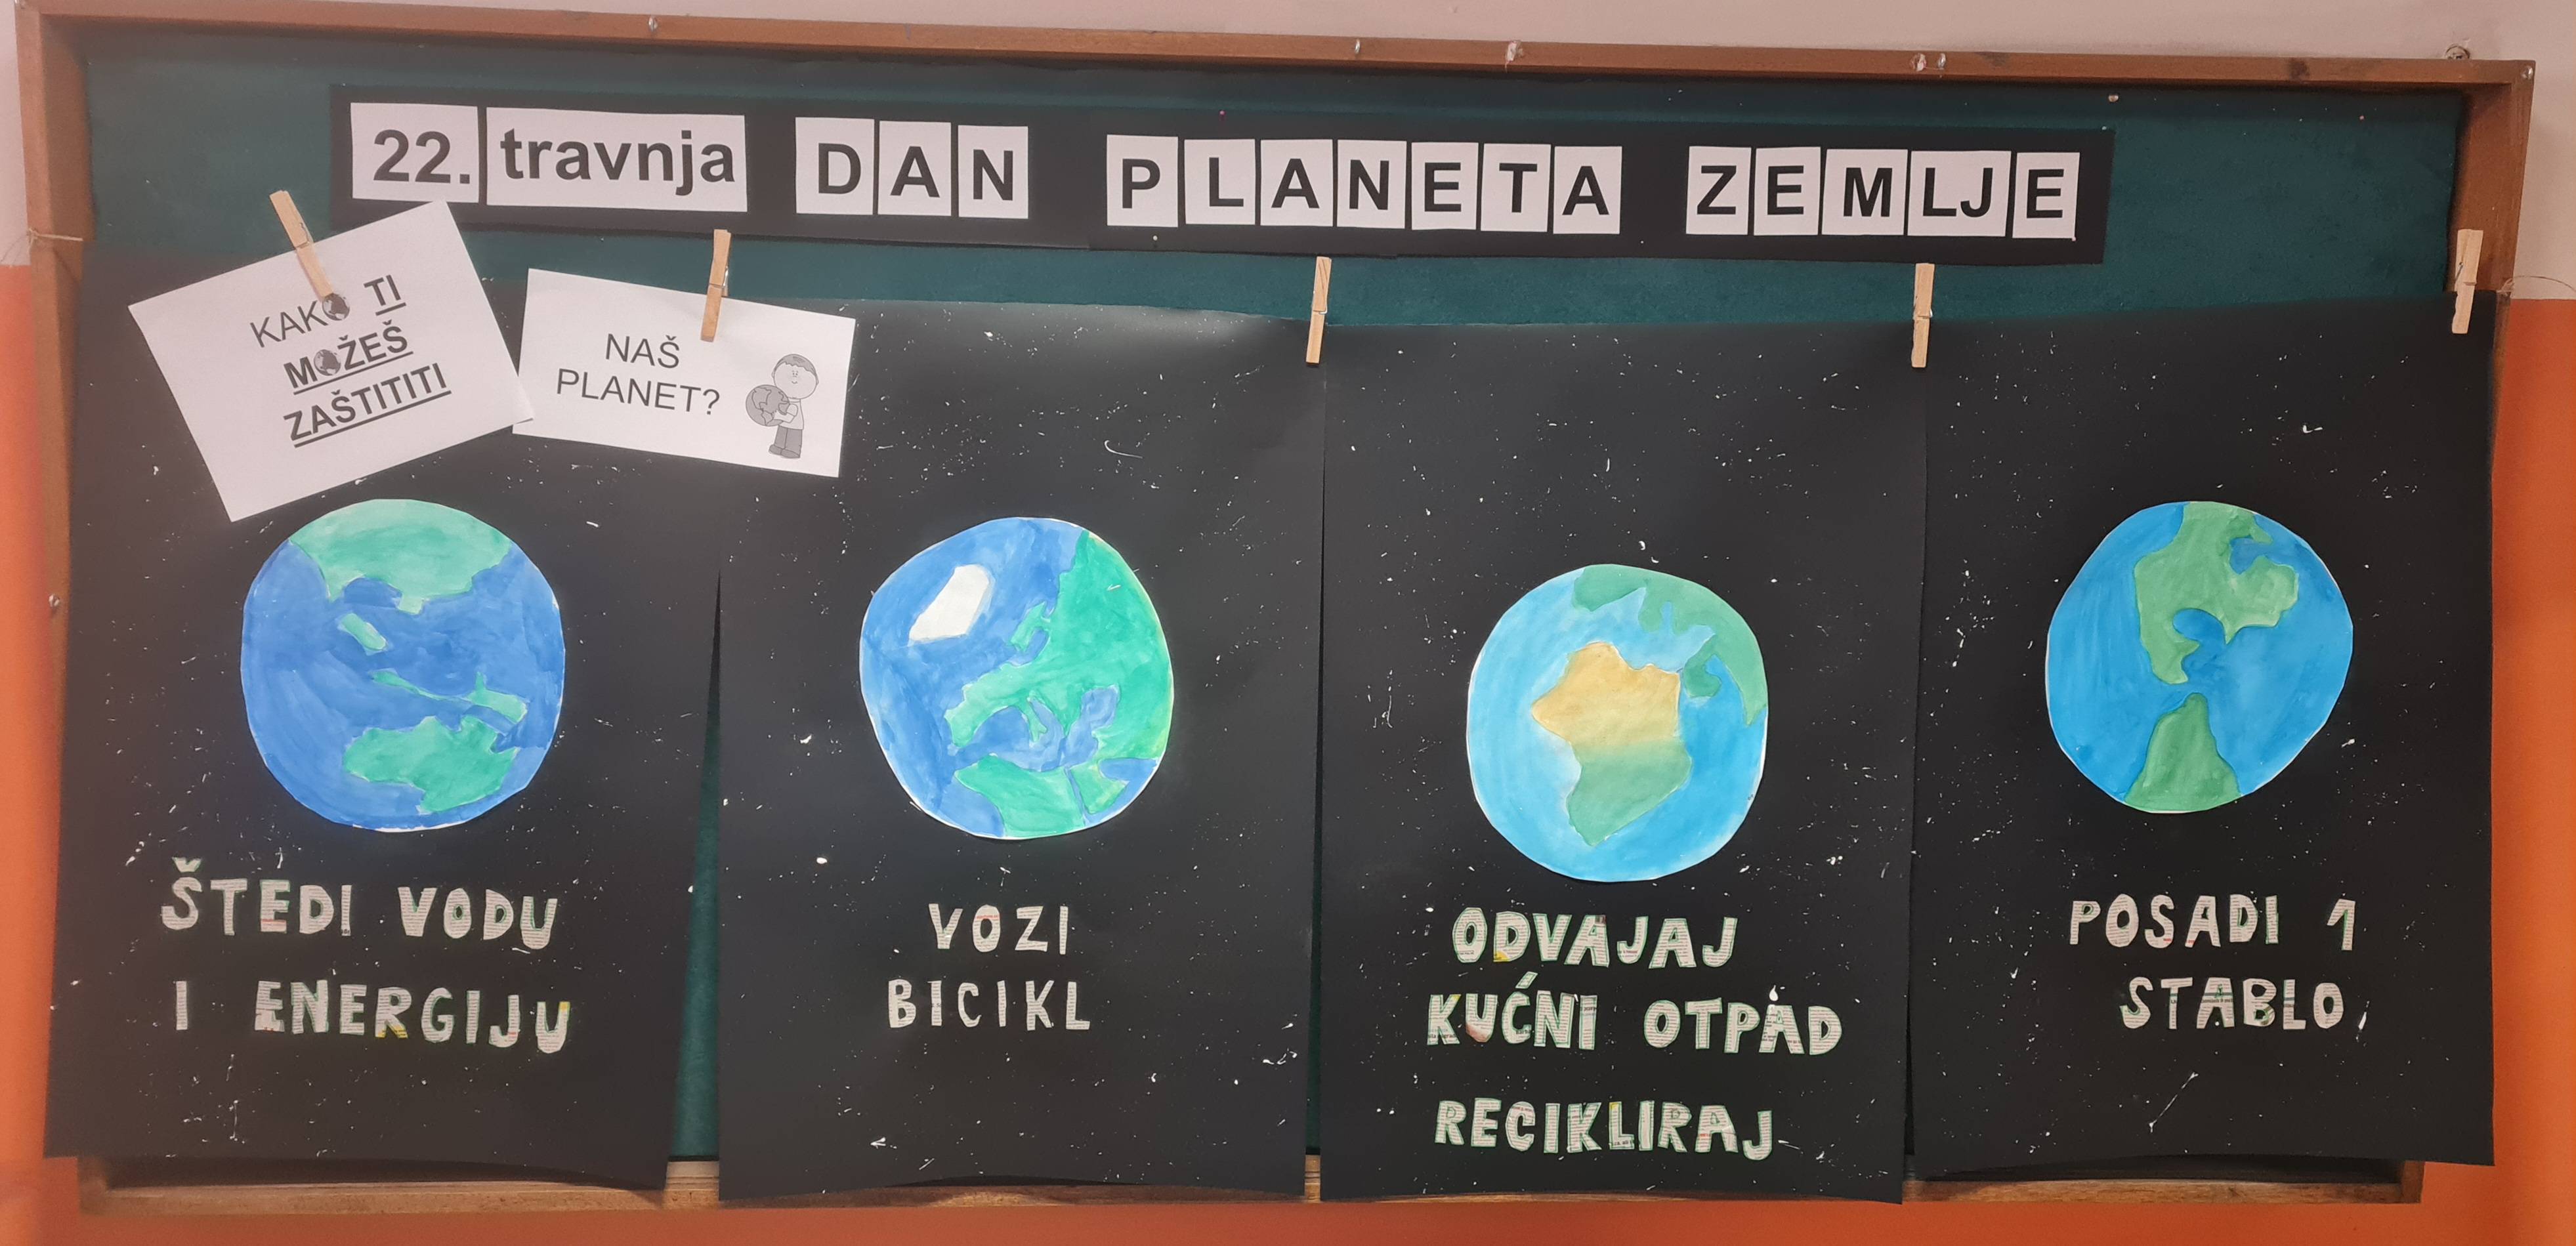 22. travnja DAN PLANETA ZEMLJE
KAKO TI
MOŽEŠ
ZAŠTITITI
NAŠ
PLANET?
ŠTEDI VODU
I ENERGIJU
VOZI
BICIKL
ODVAJAJ
KUĆNI OTPAD
RECIKLIRAJ
POSADI 1
STABLO